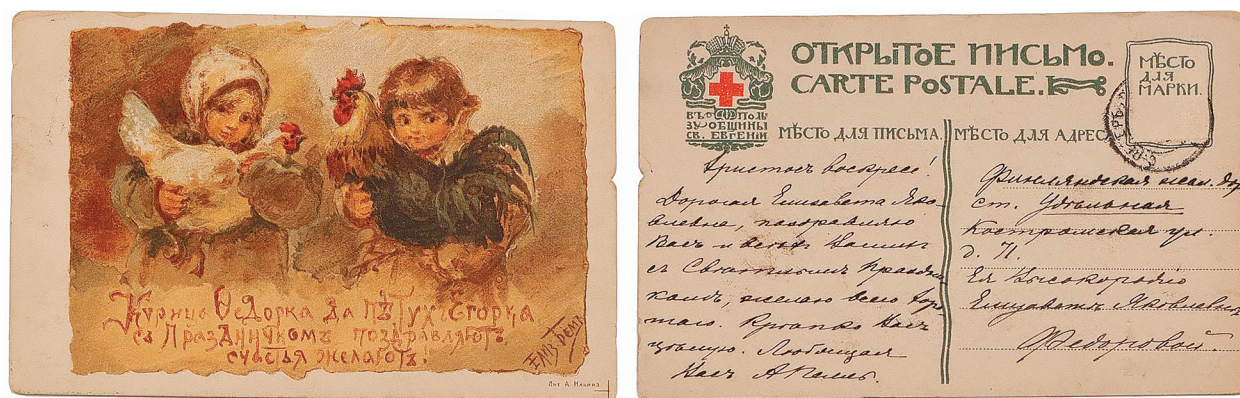 Курица Ѳедорка да пѣтухъ Егорка
съ Праздничкомъ поздравляютъ,
счастья желаютъ!
Елиз. Бемъ
Лит. А. Ильина
ОТКРЫТОЕ ПИСЬМО.
CARTE POSTALE.
МѢСТО
ДЛЯ
МАРКИ.
ВЪ ПОЛЬ
ЗУ ОБЩИНЫ
СВ. ЕВГЕНІИ
МѢСТО ДЛЯ ПИСЬМА.
МѢСТО ДЛЯ АДРЕС
Христосъ воскресе!
Дорогая Елизавета Яко-
влевна, поздравляю
Васъ и всѣхъ Вашихъ
съ Свѣтлымъ Праздни
комъ, желаю всего хор
шаго. Крѣпко Васъ
цѣлую. Любящая
Васъ
Финляндская жел. дор
ст. Удѣльная
Костромская ул.
д. 71.
Ея Высокородію
Елизаветѣ Яковлевнѣ
Федоровой.